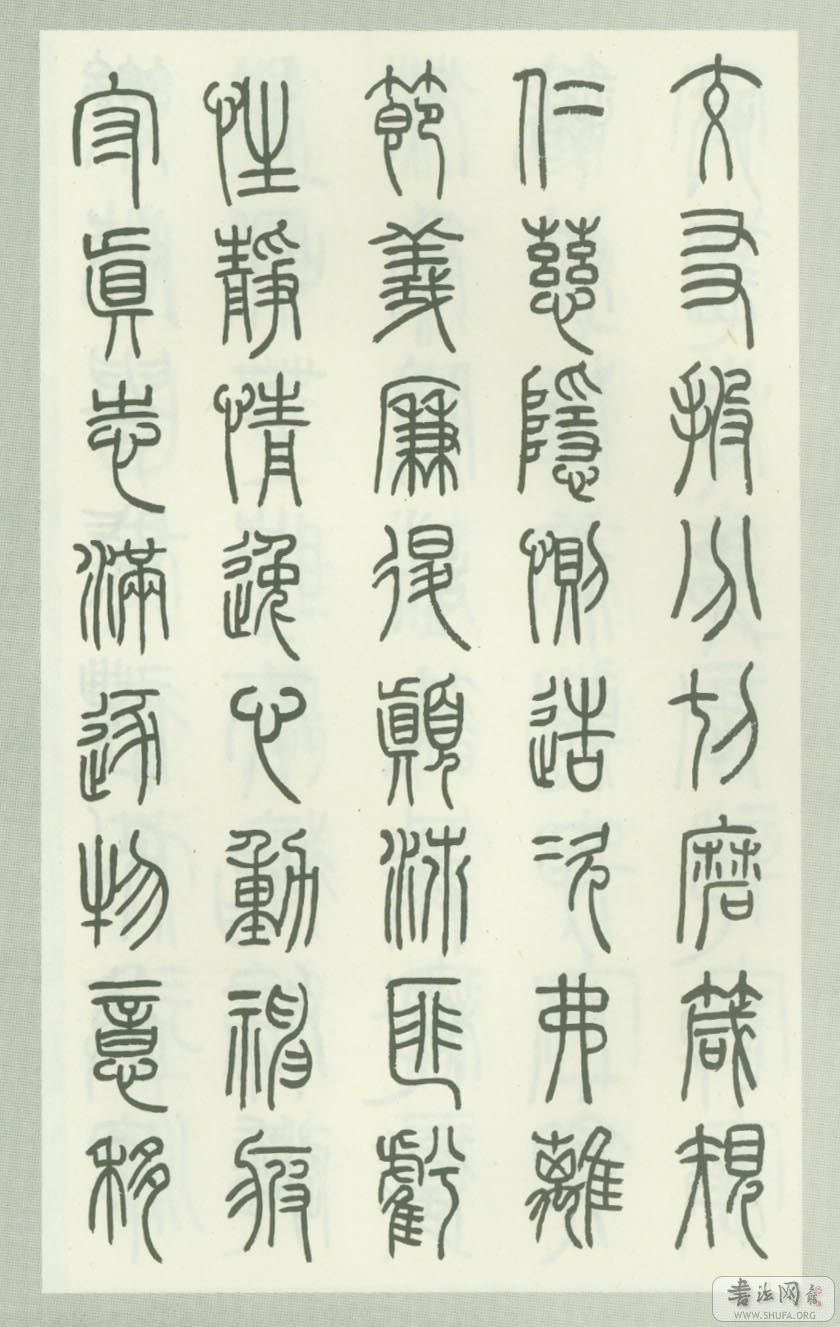 交友投分切磨箴規
仁慈隱惻造次弗離
節義廉退顛沛匪虧
性靜情逸心動神疲
守真志滿逐物意移
書法网
WWW.SHUFA.ORG